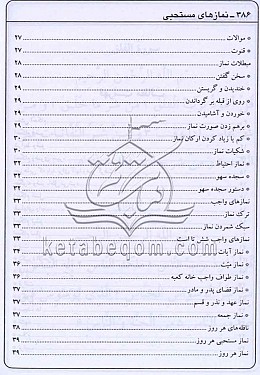 ۳۸۶ ـ نمازهای مستحبی
* موالات ... ۲۷
* قنوت ... ۲۷
مبطلات نماز ... ۲۸
* سخن گفتن ... ۲۸
* خندیدن و گریستن ... ۲۹
* روی از قبله بر گرداندن ... ۲۹
* خوردن و آشامیدن ... ۲۹
* برهم زدن صورت نماز ... ۲۹
* کم یا زیاد کردن ارکان نماز ... ۳۰
* شکیات نماز ... ۳۰
* نماز احتیاط ... ۳۲
* سجده سهو ... ۳۲
* دستور سجده سهو ... ۳۲
نمازهای واجب ... ۳۳
ترک نماز ... ۳۳
سبک شمردن نماز ... ۳۳
نمازهای واجب شش تا است ... ۳۴
* نماز آیات
* نماز میّت ... ۳۶
* نماز طواف واجب خانه کعبه ... ۳۶
* نماز قضای پدر و مادر ... ۳۷
* نماز عهد و نذر و قسم ... ۳۷
* نماز جمعه ... ۳۷
نافله‌های هر روز ... ۳۸
نماز مستحبی هر روز ... ۳۹
نماز هر روز ... ۳۹
ketabeqom.com